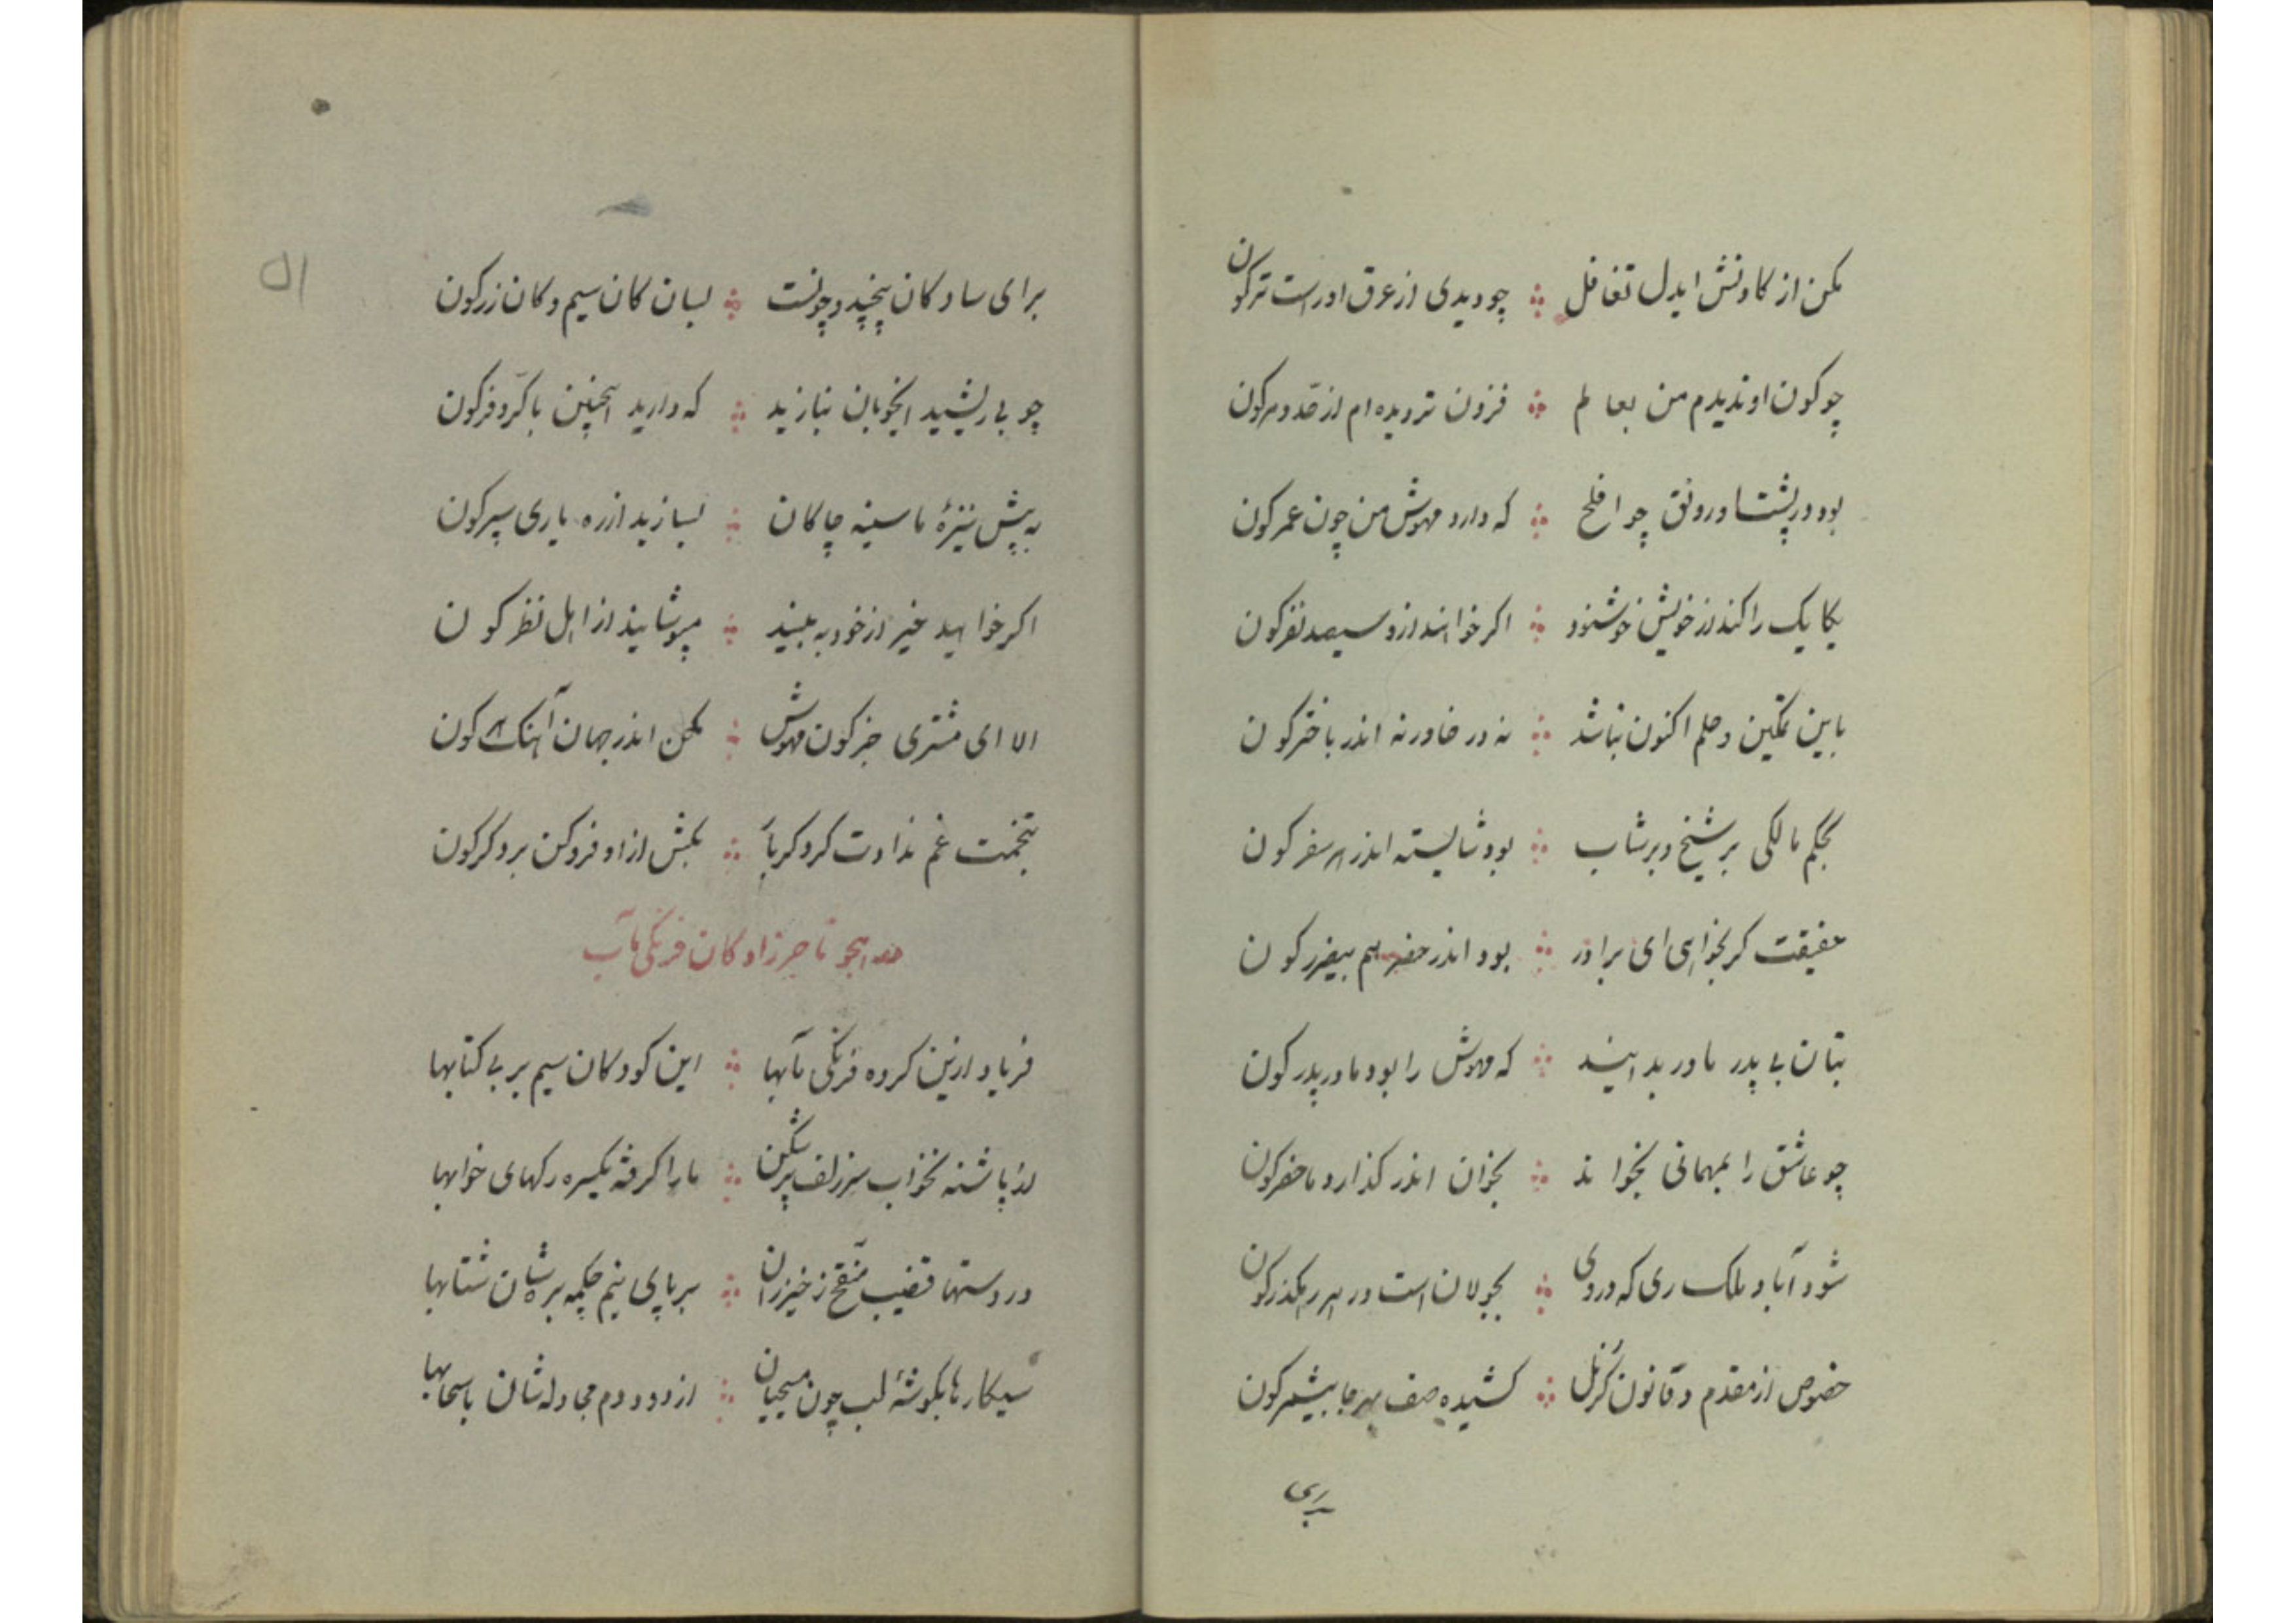 مکن از کاونش ایدل تغافل ∴ چو دیدی از عرق او راست تر کون
چو کون او ندیدم من بعالم ∴ فزون تر دیده ام از صد و مر کون
بود در پشت او رونق چو افلح ∴ که دارد مهوش من چون عمر کون
یکایک را کند از خویش خوشنود ∴ اگر خواهند ازو سیصد نفر کون
باین تمکین و حلم اکنون نباشد ∴ نه در خاور نه اندر باختر کون
بحکم مالکی بر شیخ و بر شاب ∴ بود شایسته اندر هر سفر کون
حقیقت گر بخواهی ای برادر ∴ بود اندر حضر هم بیضرر کون
بتان بی پدر مادر بدانید ∴ که مهوش را بود مادر پدر کون
چو عاشق را بمهمانی بخواند ∴ بخوان اندر گذارد ماحضر کون
شود آباد ملک ری که در وی ∴ بجولان است در هر رهگذر کون
خصوص از مقدم و قانون کرنل ∴ کشیده صف بهر جا بیشمر کون
برای
۵۱
برای سادگان پنجید و چونست ∴ بسان کان سیم و کان زر کون
چو بی ریشید ایخوبان بنازید ∴ که دارید اینچنین با کرّ و فر کون
به پیش نیزهٔ ما سینه چاکان ∴ بسازید از ره یاری سپر کون
اگر خواهید غیر از خود به بیند ∴ مپوشانید از اهل نظر کون
الا ای مشتری جز کون مهوش ∴ مکن اندر جهان آهنگ هر کون
بتخمت غم نداوت کرد کریا ∴ بکش از او فرو کن برد کر کون
در هجو تاجرزادگان فرنگی مآب
فریاد ازین گروه فرنگی مآبها ∴ این کودکان سیم بر بی کتابها
لد پاشنه نخواب سر زلف پرشکن ∴ ما را گرفته یکسره رگهای خوابها
در دستها قضیب منقح ز خیزران ∴ بر پای نیم چکمه بر شان شتابها
سیکارها بگوشهٔ لب چون مسیحیان ∴ از دود دم مجادله شان با سحابها